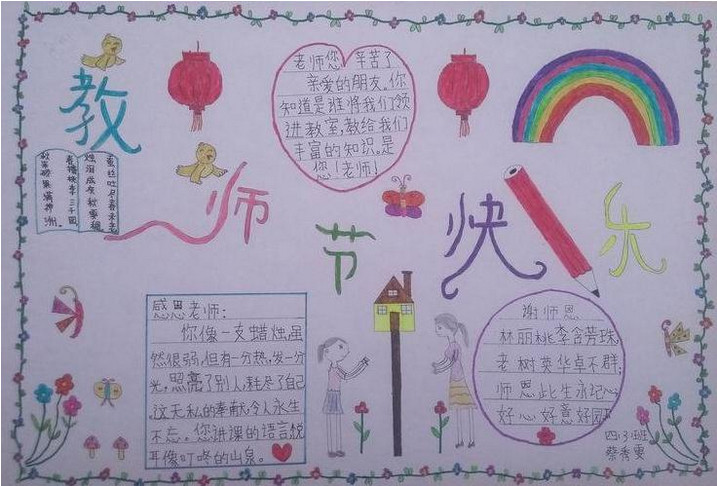 教
师
节
快
乐
蚕丝吐尽春未老
烛泪成灰秋更稠
春播桃李三千圃
秋来硕果满神洲。
老师您,辛苦了
亲爱的朋友。你
知道是谁将我们领
进教室,教给我们
丰富的知识。是
您!老师!
感恩老师:
你像一支蜡烛,虽
然很弱,但有一分热,发一分
光,照亮了别人,耗尽了自己
,这无私的奉献,令人永生
不忘。您讲课的语言,悦
耳像叮咚的山泉。
谢师恩
林丽桃李含芳珠,
老树英华卓不群;
师恩此生永记心
好心好意好园
四.3班
蔡秀雯